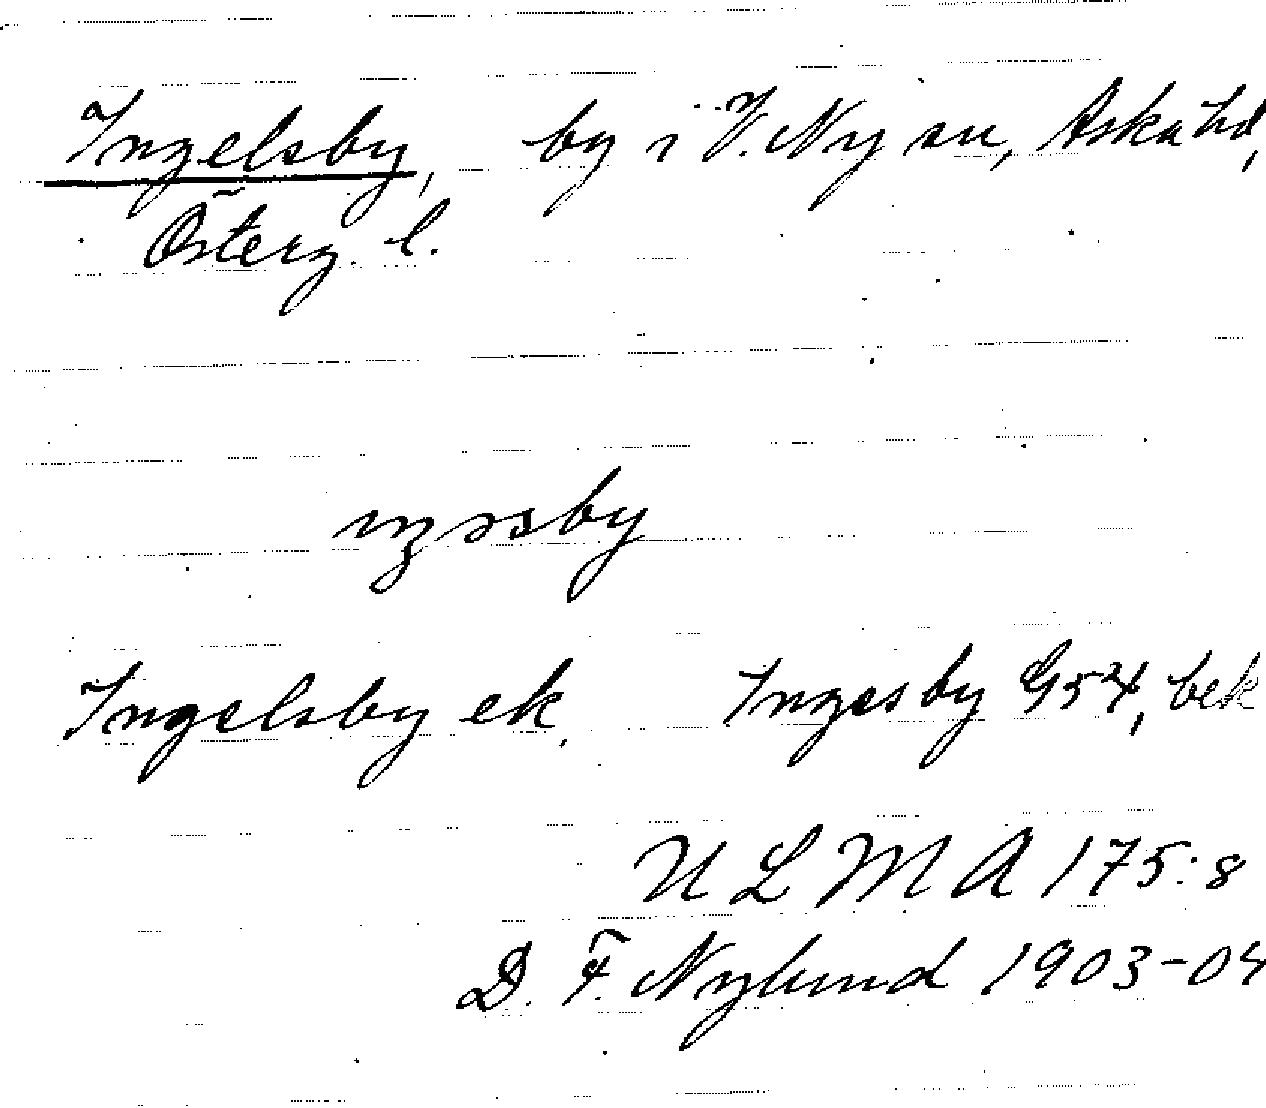 Ingelsby, by i V. Ny sn, Aska hd,
Österg. l.
ıŋəsby
Ingelsby ek, Ingesby G54, bek
ULMA 175:8
D. F. Nylund 1903-04